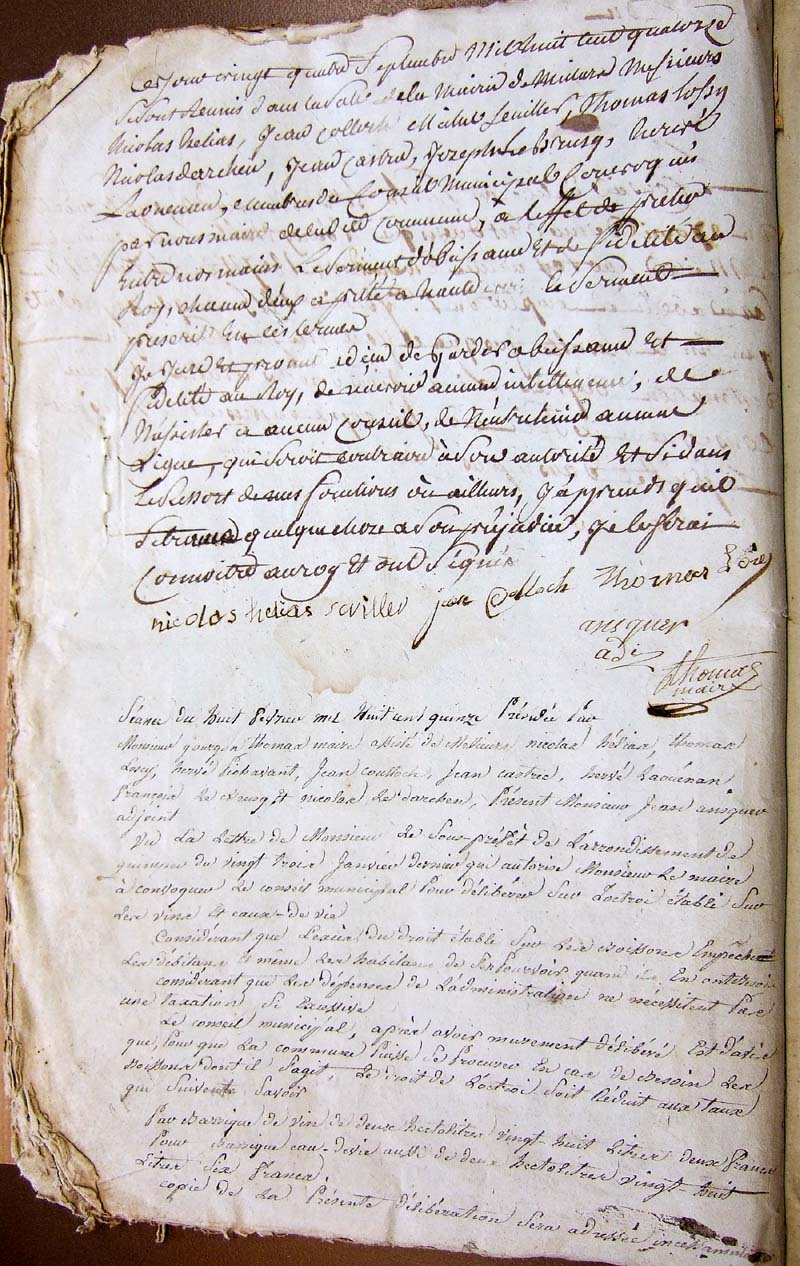 Ce jour vingt quatre Septembre Mil huit cent quatorze
Se Sont Reunis dans la Salle de la Mairie de Messieurs
Nicolas helias, Jean Colloch Seviller, Thomas Lossy
Nicolas darchen, Jean Castre, Joseph Le Brusq, hervé
Laouenan, membres du Conseil Municipal Convoqués
par nous maire de ladite Commune, a leffet de preter
Entre nos mains Le Serment dobeissance Et de fidelité au
Roy, chacun deux a preté a haute le Serment
prescrit En ces termes
Je jure Et promet a dieu de garder obeissance Et
fidelité au Roy, de navoir aucune intelligence, de
Nassister a aucun Conseil, de Nentretenir aucune
Ligue, qui Seroit contraire à Son autorité Et Si dans
Le Ressort de mes fonctions ou ailleurs, J'apprends quil
Se trame quelque choze a Son prejudice, Je le ferai
Connoitre au roy Et ont Signés
nicolas helias seviller jean Colloch Thomas
ansquer
adj
Thomas
maire
Séance du huit fevrier mil huit cent quinze Présidée Par
Monsieur gourgon Thomas maire assisté de Messieurs nicolas hélias, thomas
Lossy, hervé Pichavant, Jean Coulloch, Jean castrec, hervé Laouénan
françois Le Brusq Et nicolas Le darchen, Présent Monsieur Jean ansquer
adjoint
Vu La Lettre de Monsieur Le Sous-préfet de L'arrondissement de
quimper du vingt trois Janvier dernier qui autorise Monsieur Le maire
à convoquer Le conseil municipal Pour délibérer Sur L'octroi établi Sur
Les vins Et eaux-de-vie
Considérant que L'excès du droit établi Sur Les Boissons Empêchent
Les débitans Et même Les habitans de Se Pourvoir quand ils En ont Besoin
considérant que Les dépenses de L'administration ne nécessitent Pas
une taxation Si Excessive
Le conseil municipal, après avoir murement délibéré Est d'avis
que, Pour que La commune Puisse Se Procurer En cas de Bessoin Les
Boissons dont il S'agit, Le droit de L'octroi Soit Réduit aux taux
qui Suivent Savoir
Par Barrique de vin de deux hectolitres vingt-huit Litres deux francs
Pour Barrique eau-de-vie aussi de deux hectolitres vingt-huit
Litres Six francs.
copie de La Présente délibération Sera adressée